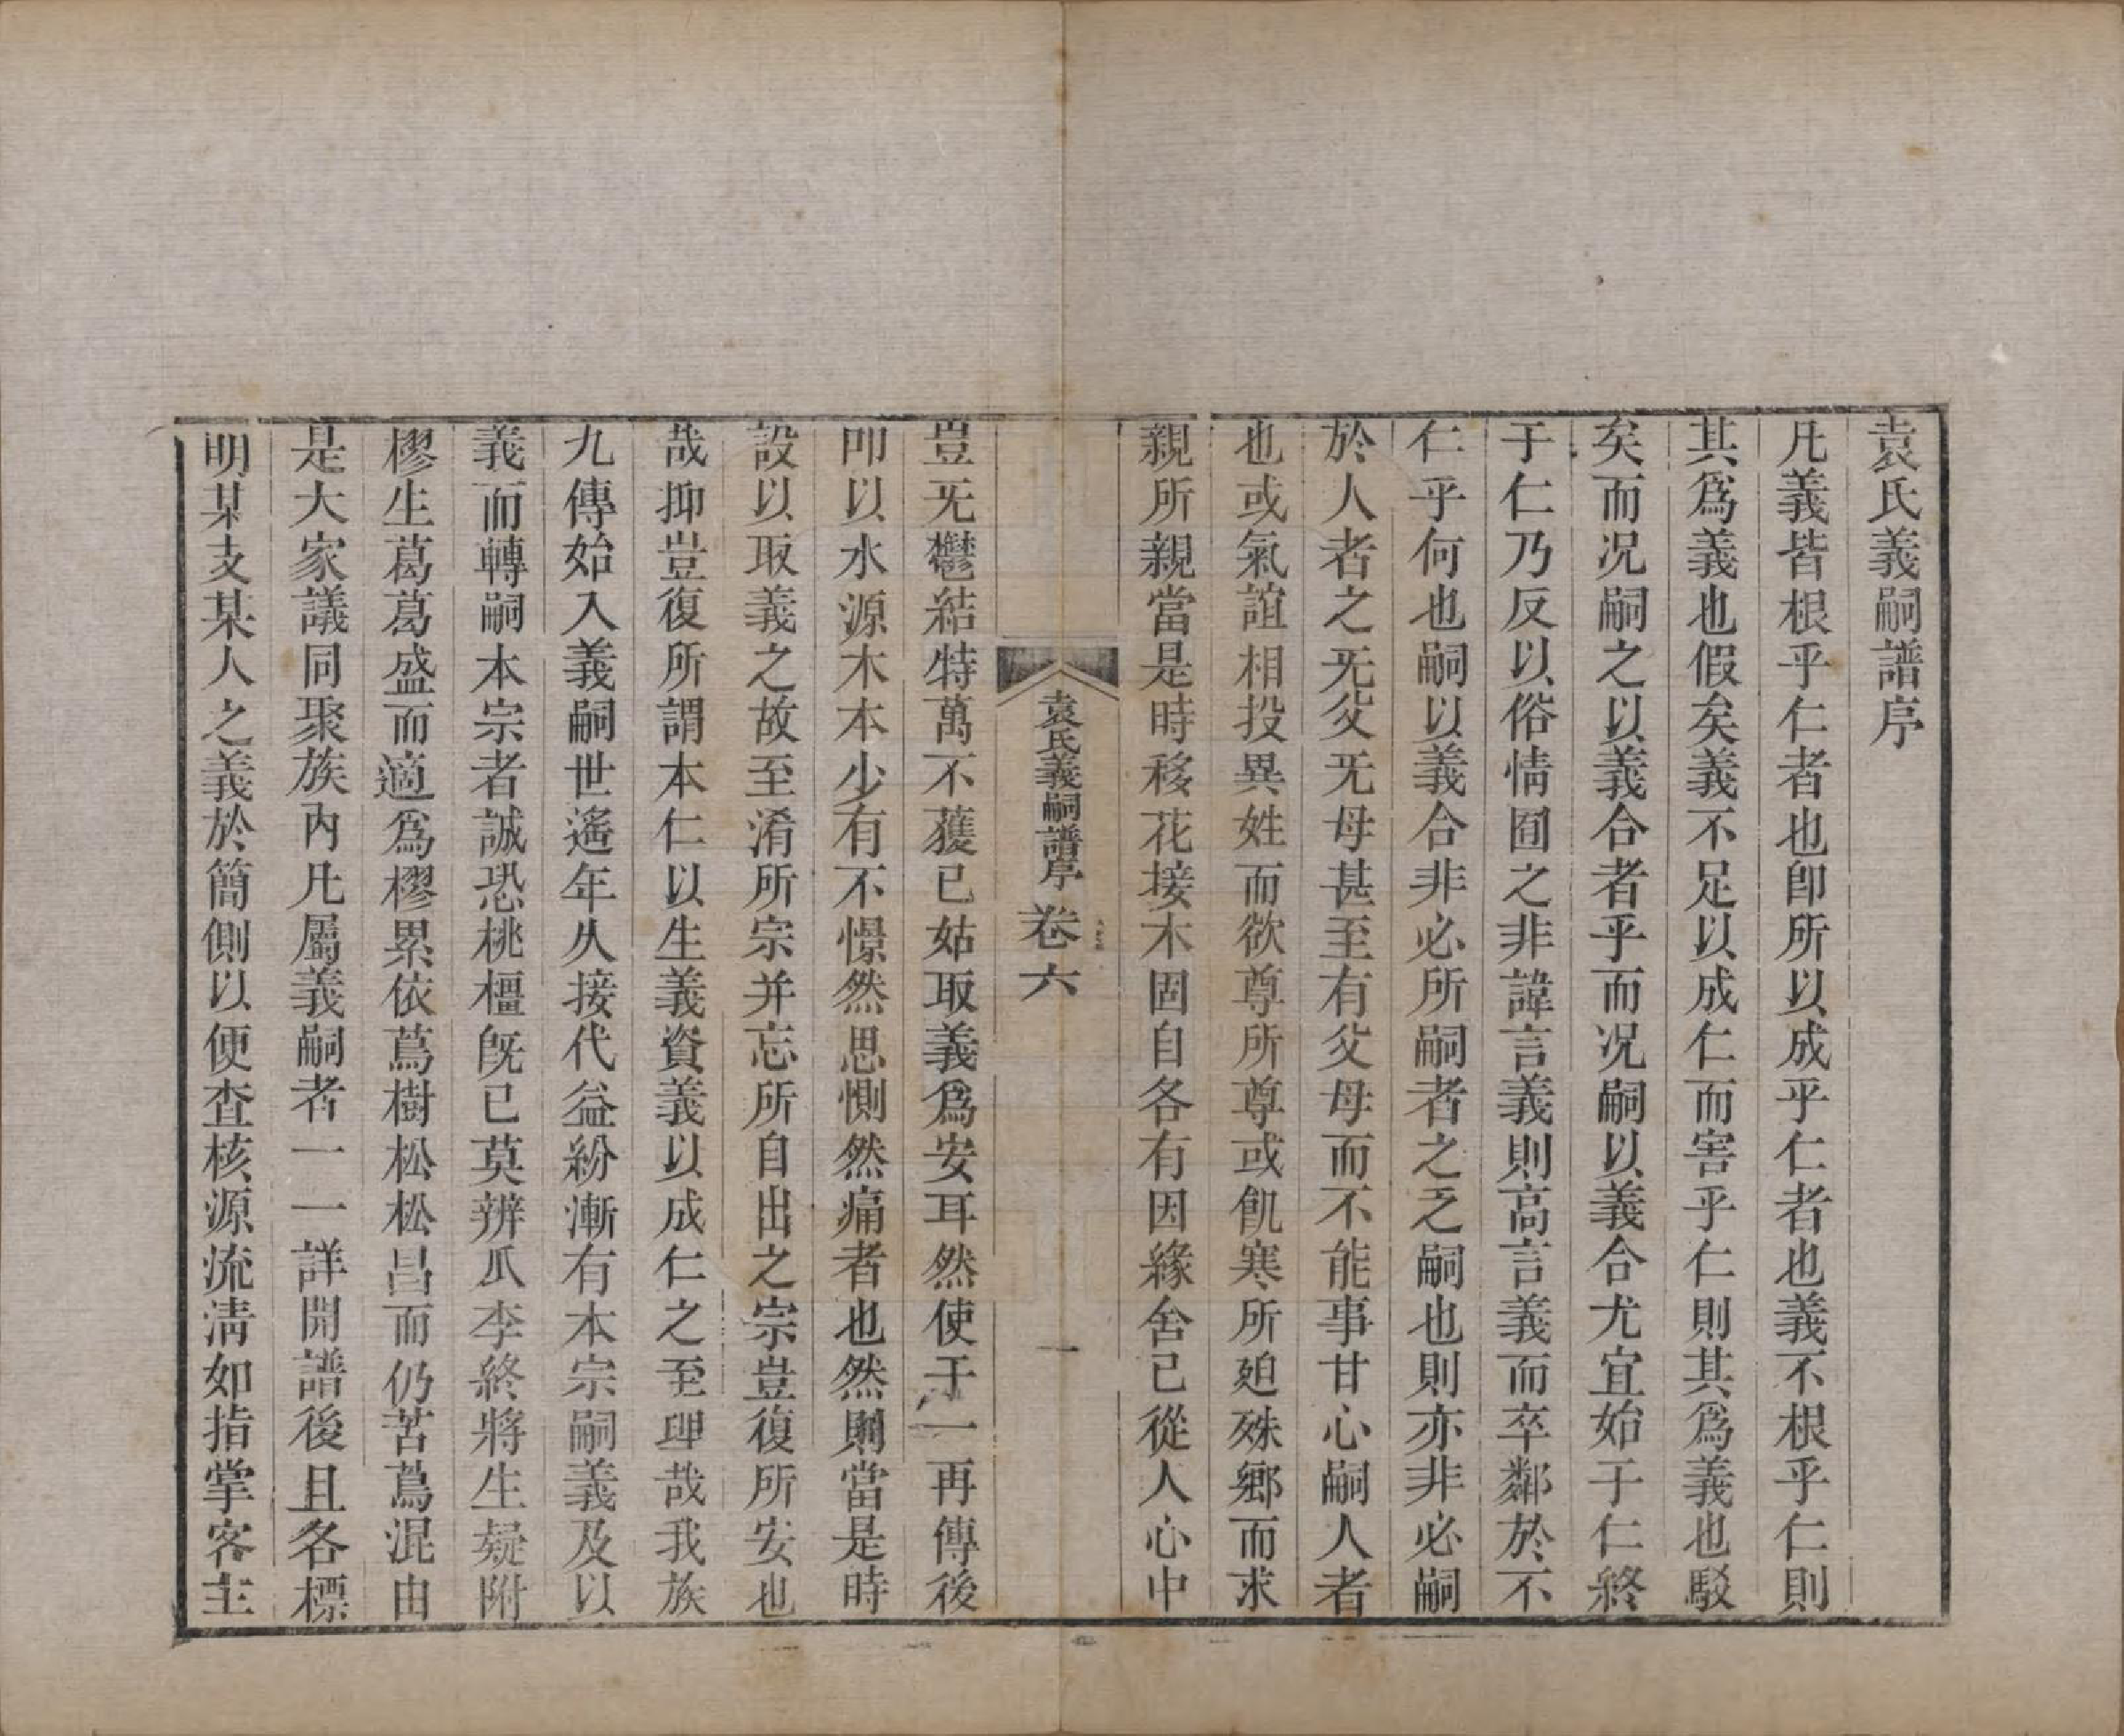 袁氏義嗣譜序
凡義皆根乎仁者也卽所以成乎仁者也義不根乎仁則
其爲義也假矣義不足以成仁而害乎仁則其爲義也駁
矣而况嗣之以義合者乎而况嗣以義合尤宜始于仁終
于仁乃反以俗情囿之非諱言義則高言義而卒鄰於不
仁乎何也嗣以義合非必所嗣者之乏嗣也則亦非必嗣
於人者之旡父旡母甚至有父母而不能事甘心嗣人者
也或氣誼相投異姓而欲尊所尊或飢寒所廹殊鄉而求
親所親當是時移花接木固自各有因緣舍已從人心中
袁氏義嗣譜序 卷六 一
豈旡鬱結特萬不獲已姑取義爲安耳然使于一再傳後
叩以水源木本少有不憬然思惻然痛者也然則當是時
設以取義之故至淆所宗并忘所自出之宗豈復所安也
哉抑豈復所謂本仁以生義資義以成仁之至理哉我族
九傳始入義嗣世遙年久接代益紛漸有本宗嗣義及以
義而轉嗣本宗者誠恐桃橿旣已莫辨瓜李終將生疑附
樛生葛葛盛而適爲樛累依蔦樹松松昌而仍苦蔦混由
是大家議同聚族內凡屬義嗣者一一詳開譜後且各標
明某支某人之義於簡側以便查核源流淸如指掌客主